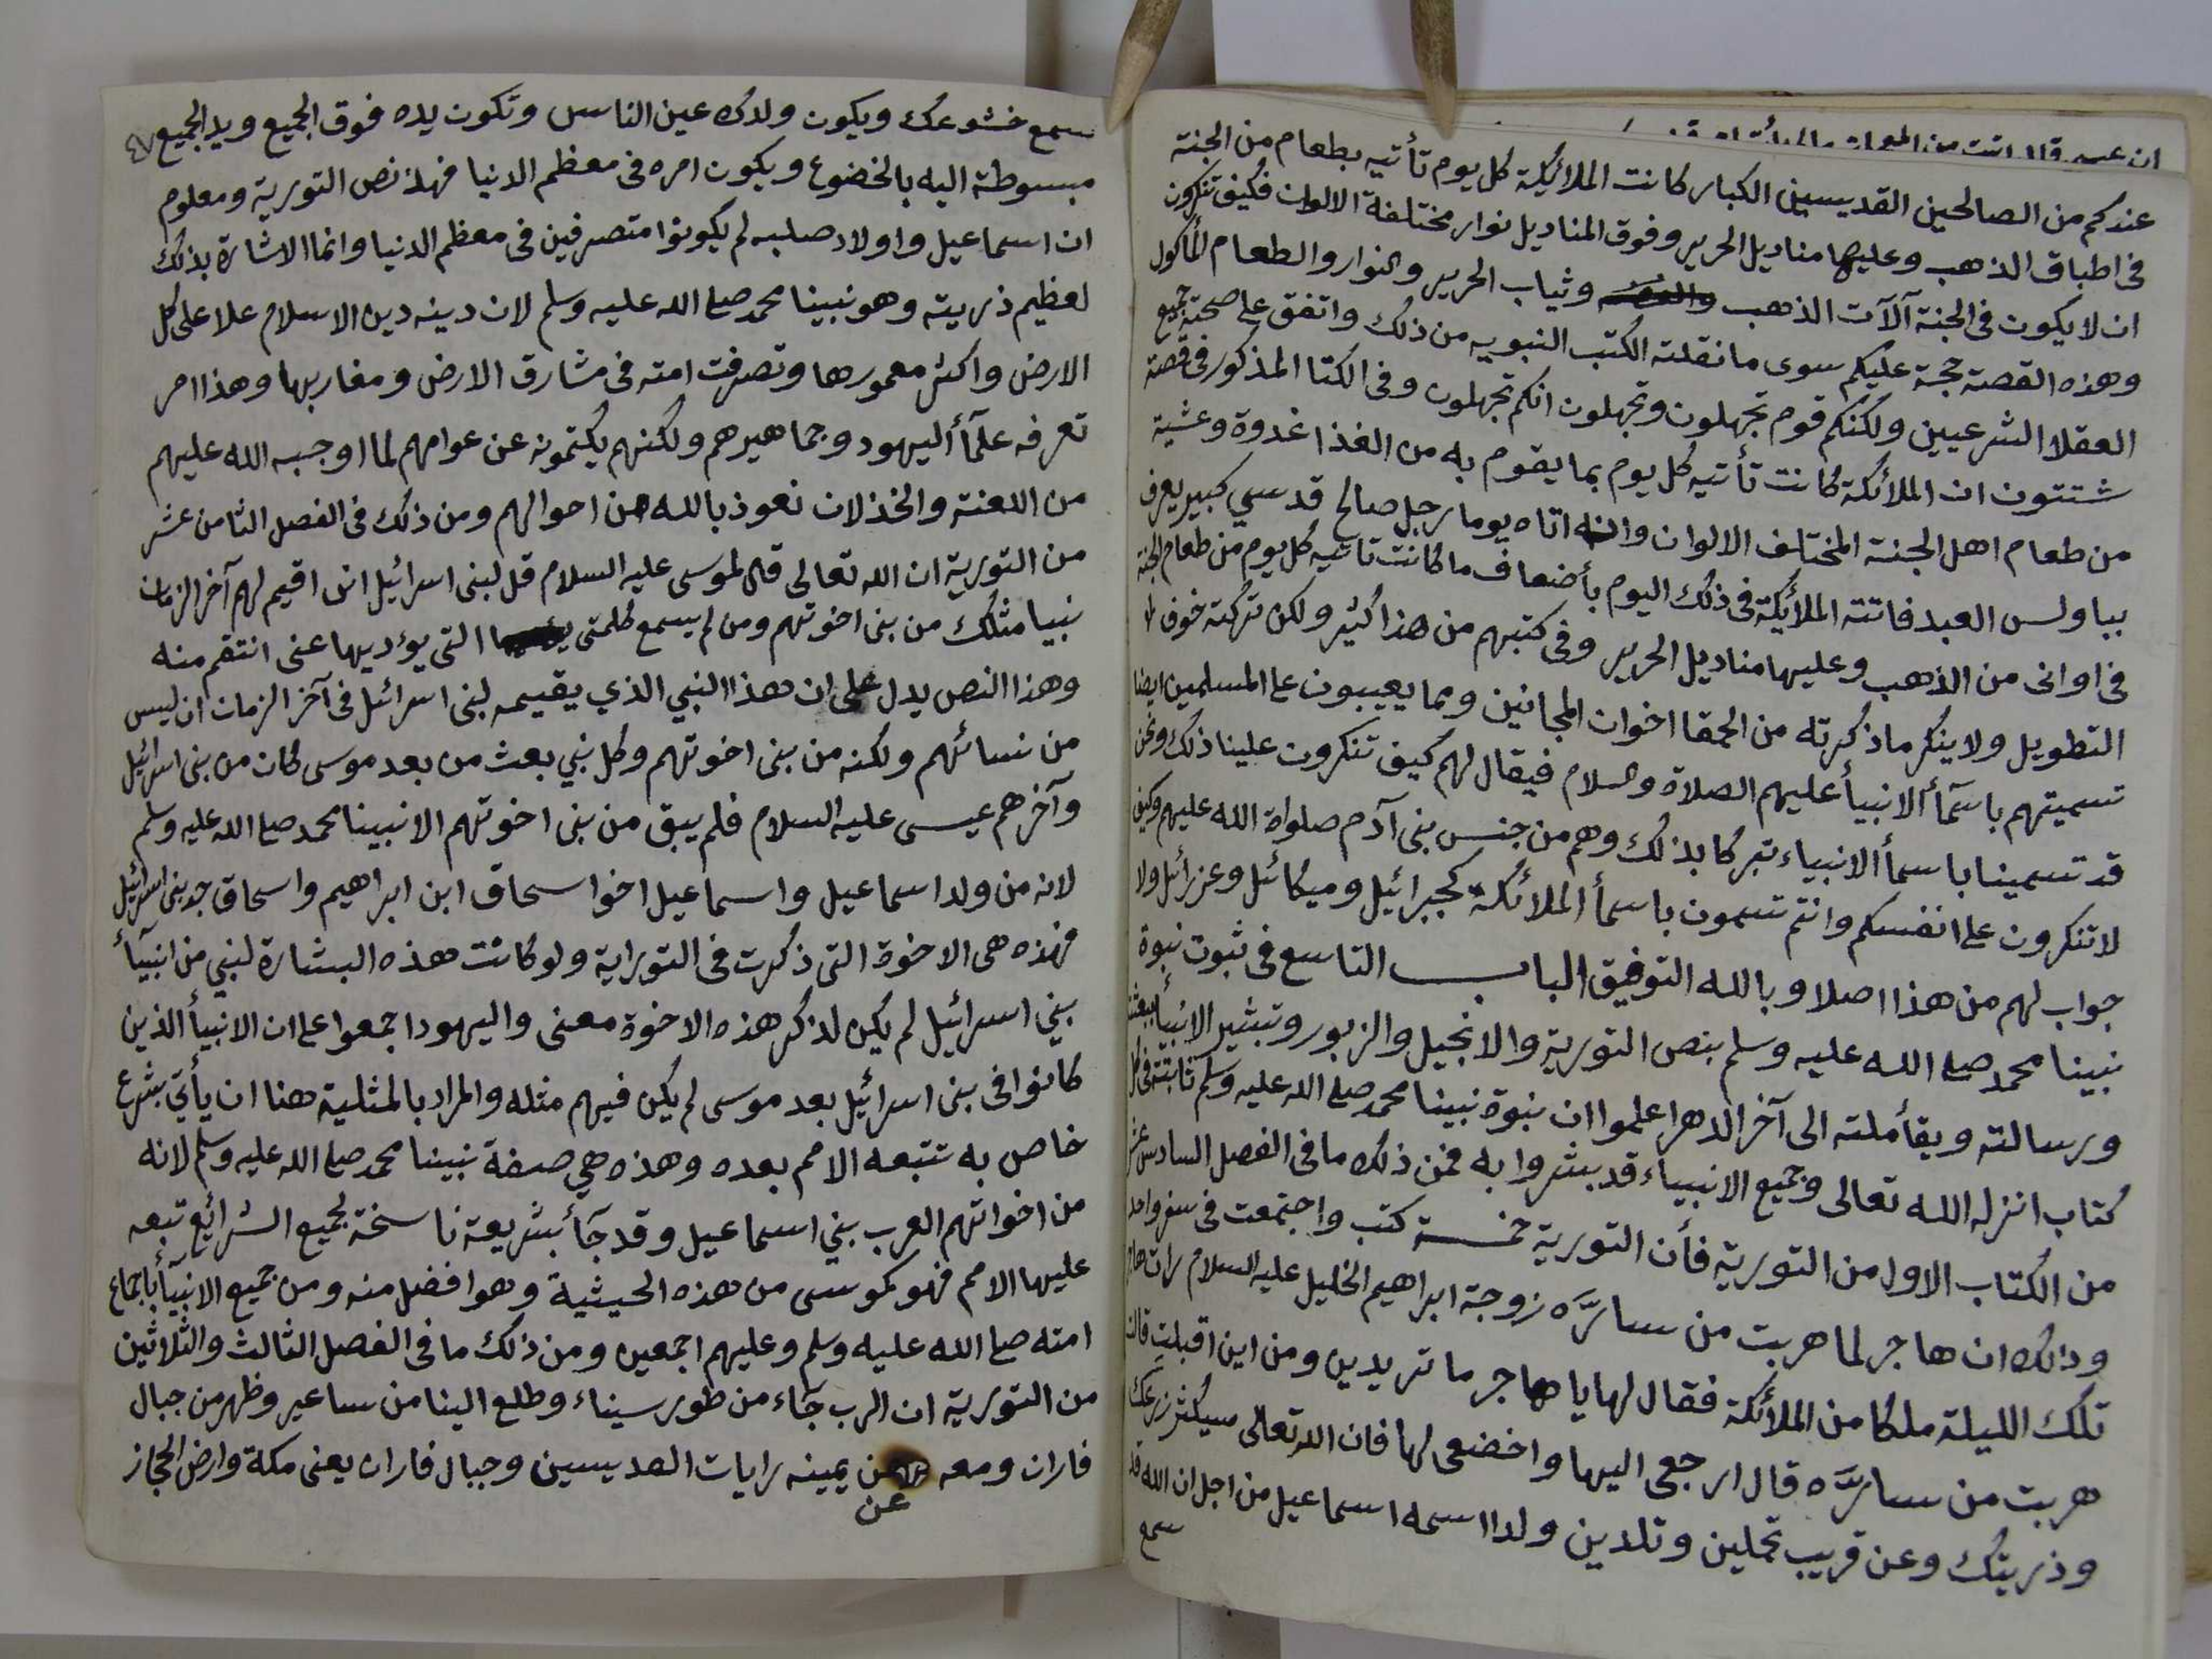 عندكم من الصالحين القديسين الكبار كانت الملائكة كل يوم تأتيه بطعام من الجنة
فى اطباق الذهب وعليها مناديل الحرير وفوق المناديل نوار مختلفة الالوان فكيف تنكرون
ان لا يكون فى الجنة آلآت الذهب وثياب الحرير والنوار والطعام المأكول
وهذه القصة حجة عليكم سوى ما نقلته الكتب النبويه من ذلك واتفق على صحته جميع
العقلا الشرعيين ولكنكم قوم تجهلون وتجهلون انكم تجهلون وفى الكتا المذكور فى قصة
ان الملائكة كانت تأتيه كل يوم بما يقوم به من الغذا غدوة وعشية
من طعام اهل الجنة المختلف الالوان وانه اتاه يوما رجل صالح قدسي كبير يعرف
بباولس العبد فاتته الملائكة فى ذلك اليوم بأضعاف ما كانت تاتيه كل يوم من طعام الجنة
فى اوانى من الذهب وعليها مناديل الحرير وفى كتبهم من هذا كثير ولكن تركته خوف ا
التطويل ولا ينكر ما ذكرته من الحمقا اخوان المجانين ومما يعيبون على المسلمين ايضا
تسميتهم باسمآ الانبيأ عليهم الصلاة والسلام فيقال لهم كيف تنكرون علينا ذلك ونحن
قد تسمينا باسمأ الانبياء تبركا بذلك وهم من جنس بنى آدم صلواة الله عليهم وكيف
لا تنكرون على انفسكم وانتم تسمون باسمأ الملائكة كجبرائيل وميكائل وعزرائل ولا
جواب لهم من هذا اصلا وبالله التوفيق الباب التاسع فى ثبوت نبوة
نبينا محمد صلى الله عليه وسلم بنص التورية والانجيل والزبور وتبشير الانبيأ ببعثته
ورسالته وبقأ ملته الى آخر الدهر اعلموا ان نبوة نبينا محمد صلى الله عليه وسلم ثابتة فى كل
كتاب انزله الله تعالى وجميع الانبيياء قد بشروا به فمن ذلك ما فى الفصل السادس عشر
من الكتاب الاول من التورية فأن التورية خمسة كتب واجتمعت فى سفر واحد
وذالك ان هاجر لما هربت من سارَّه زوجة ابراهيم الخليل عليه السلام رات هاجر
تلك الليلة ملكا من الملائكة فقال لها يا هاجر ما تريدين ومن اين اقبلت قالت
هربت من سارَّه قال ارجعى اليها واخضعى لها فان الله تعالى سيكثر زرعك
وذريتك وعن قريب تحملين وتلدين ولدا اسمه اسماعيل من اجل ان الله قد
سمع
سمع خشوعك ويكون ولدك عين الناس وتكون يده فوق الجميع ويد الجميع ٤٧
مبسوطة اليه بالخضوع ويكون امره فى معظم الدنيا فهذ نص التورية ومعلوم
ان اسماعيل واولاد صلبه لم يكونوا متصرفين فى معظم الدنيا وانما الاشارة بذلك
لعظيم ذريته وهو نبينا محمد صلى الله عليه وسلم لان دينه دين الاسلام علا على كل
الارض واكثر معمورها وتصرفت امته فى مشارق الارض ومغاربها وهذا امر
تعرفه علمآأ اليهود وجماهيرهم ولكنهم يكتمونه عن عوامهم لما اوجبه الله عليهم
من اللعنة والخذلان نعوذ بالله من احوالهم ومن ذلك فى الفصل الثامن عشر
من التورية ان الله تعالى قال لموسى عليه السلام قل لبنى اسرائيل انى اقيم لهم آخر الزمان
نبيا مثلك من بنى اخوتهم ومن لم يسمع كلمتى التى يؤديها عنى انتقم منه
وهذا النص يدل على ان هذا النبي الذي يقيمه لبنى اسرائل فى آخر الزمان ان ليس
من نسائهم ولكنه من بنى اخوتهم وكل نبي بعث من بعد موسى كان من بنى اسرائيل
وآخرهم عيسى عليه السلام فلم يبق من بنى اخوتهم الا نبينا محمد صلى الله عليه وسلم
لانه من ولد اسماعيل واسماعيل اخوا سحاق ابن ابراهيم واسحاق جد بنى اسرائيل
فهذه هى الاخوة التى ذكرت فى التوراية ولو كانت هذه البشارة لنبي من انبيآأ
بني اسرائيل لم يكن لذكر هذه الاخوة معنى واليهود اجمعوا على ان الانبيأ الذين
كانوا فى بنى اسرائيل بعد موسى لم يكن فيهم مثله والمراد بالمثلية هنا ان يأتي بشرع
خاص به تتبعه الامم بعده وهذه هي صفة نبينا محمد صلى الله عليه وسلم لانه
من اخواتهم العرب بني اسماعيل وقد جآأ بشريعة ناسخة لجميع الشرائع تبعه
عليها الامم فهو كموسى من هذه الحيثية وهو افضل منه ومن جميع الانبيآأ باجماع
امته صلى الله عليه وسلم وعليهم اجمعين ومن ذلك ما فى الفصل الثالث والثلاثين
من التورية ان الرب جآء من طور سيناء وطلع الينا من ساعير وظهر من جبال
فاران ومعه عن يمينه رايات القديسين وجبال فاران يعنى مكة وارض الحجاز
عن